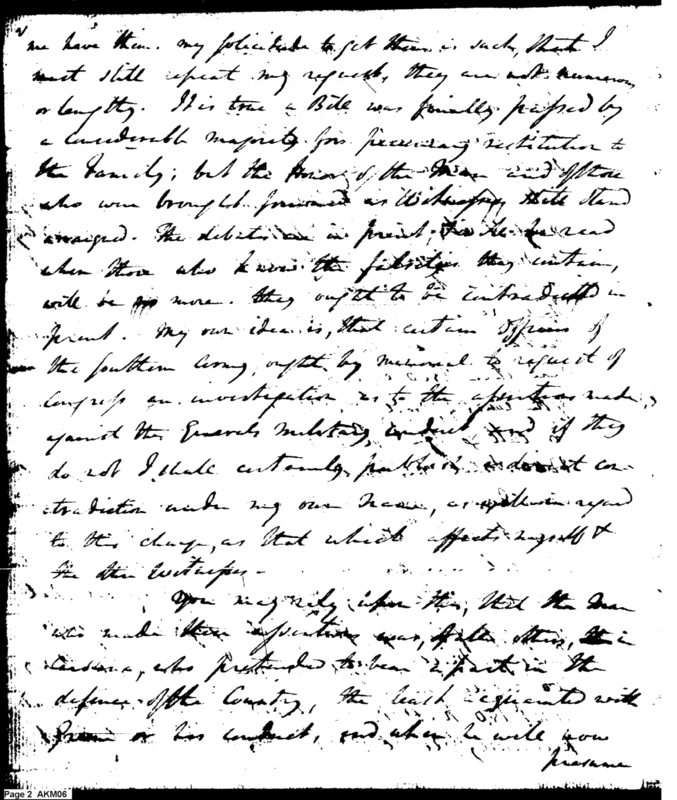 me have them. my solicitude to get them is such, that I
must still repeat my request, they are not numerous
or lengthy. It is true a Bill was finally passed by
a considerable majority for securing restitution to
the Family; but the Honor of the Man and of those
who were brought forward as Witnesses, still stand
arraigned. The debates are in print, will be read
when those who know the falsities they contain,
will be no more. they ought to be contradicted in
print. My own idea is, that certain officers of
the southern Army, ought by memorial to request of
Congress an investigation as to the assertions made
against the Generals military conduct and if they
do not I shall certainly publish a direct con-
tradiction under my own name, as well in regard
to this charge, as that which affects myself &
the other Witnesses -
You may rely upon this, that the Man
who made these assertions was, of all others, in
Carolina, who pretended to bear a part in the
defence of the Country, the least acquainted with
Greene or his conduct, and when he will now
presume
Page 2 AKM06